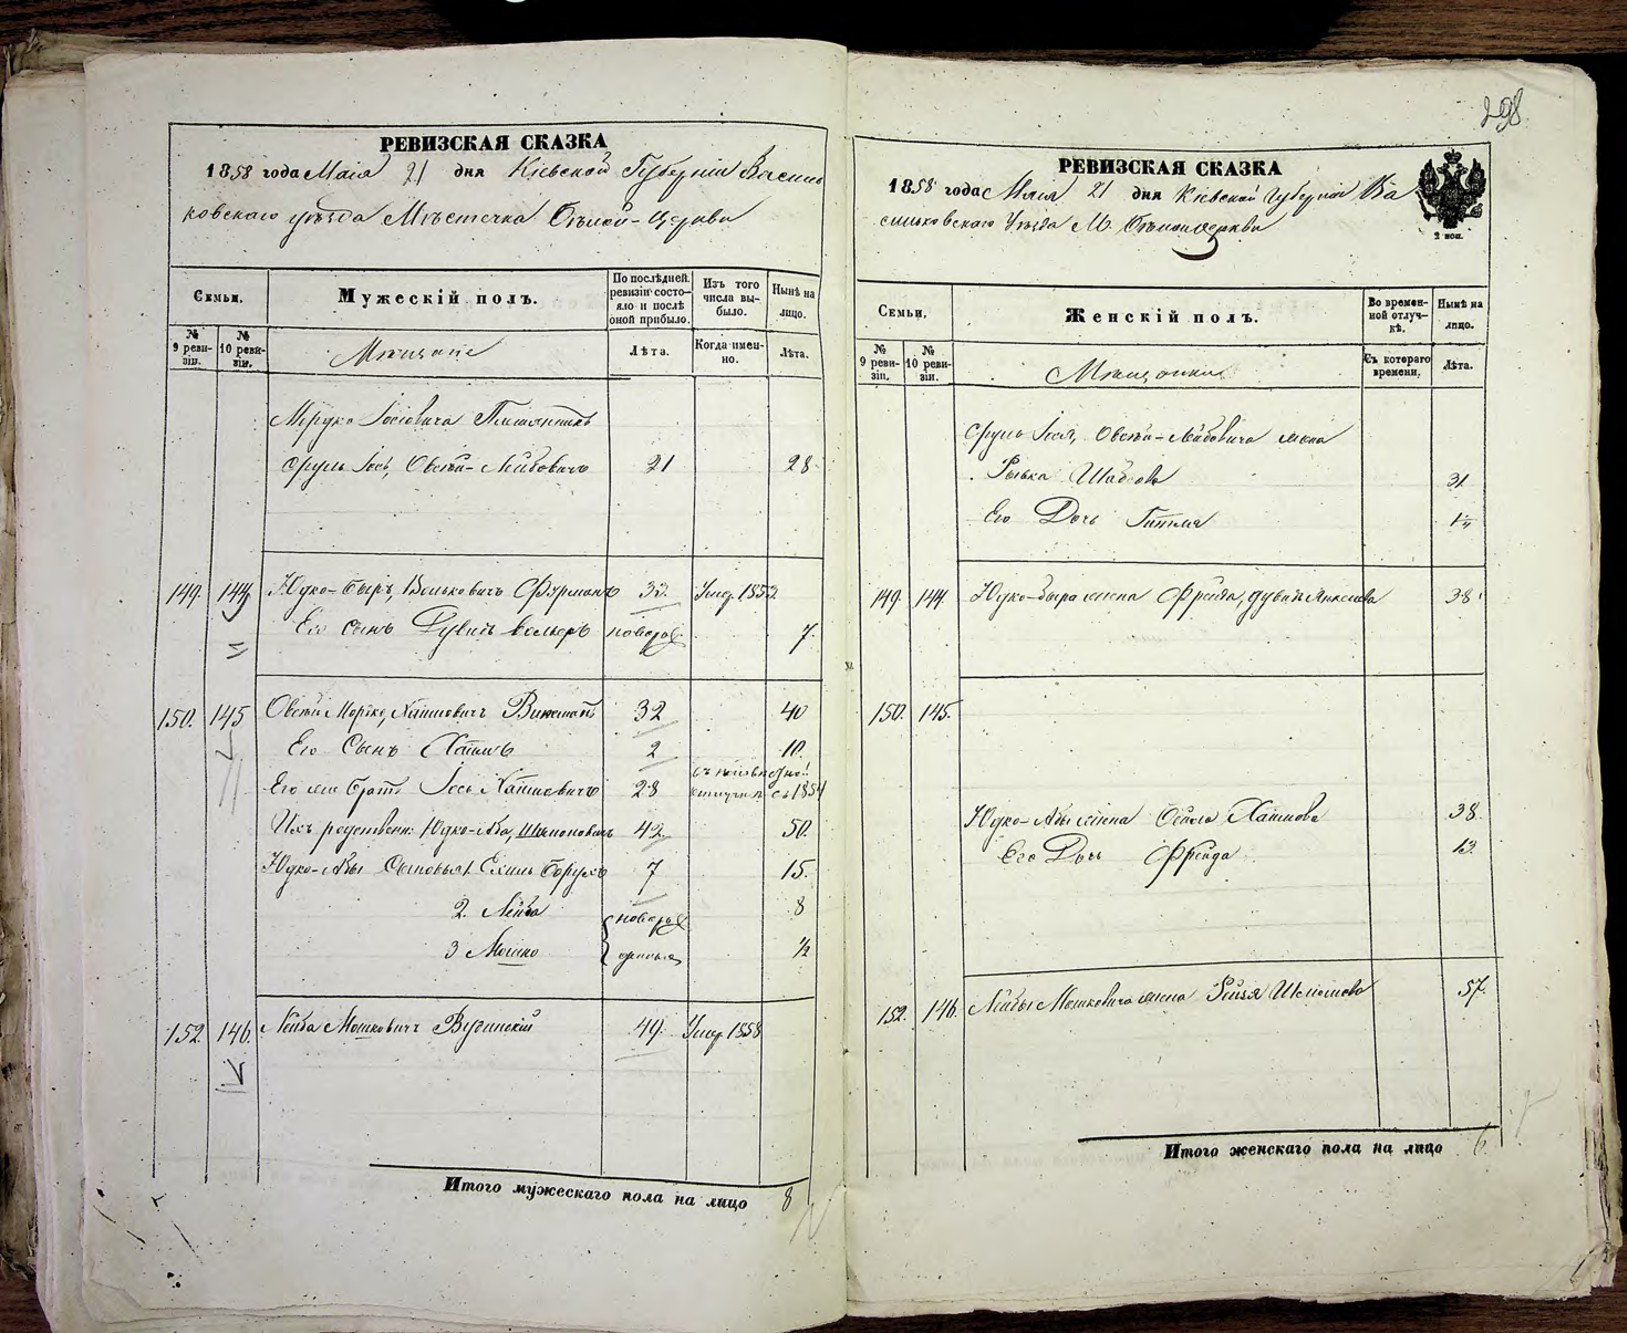 298
РЕВИЗСКАЯ СКАЗКА
1858 года Маія 21 дня Кіевской Губерніи Василь
ковскаго уѣзда Мѣстечка Бѣлой-Церкви
Семьи.
Мужескій полъ.
По послѣдней ревизіи состояло и послѣ оной прибыло.
Изъ того числа выбыло.
Нынѣ на лицо.
№ 9 ревизіи.
№ 10 ревизіи.
Мѣщане
Лѣта.
Когда именно.
Лѣта.
Мордко Іосіовича
Сруль Іось, Овсѣй-Лейбовичъ 21 28
149. 144 Юдко-Беръ, Вольковичъ Фурманъ 33. Умер. 1853
Его сынъ Дувидъ Волькеръ новорож 7.
150. 145 Овсѣй Мордко, Хаимовичъ 32 40
Его Сынъ Хаимъ 2 10.
Его же братъ Іось Хаимовичъ 28 отлуч. съ 1854
Ихъ родственн: Юдко-Аба, Шимоновичъ 42. 50.
Юдко-Абы Сыновья 1 Борухъ 7 15.
2. Лейба новорож 8
3 Мошко 1/2
152. 146. Лейба Мошковичъ 49. Умер. 1858
Итого мужескаго пола на лицо 8
РЕВИЗСКАЯ СКАЗКА
1858 года Маія 21 дня Кіевской Губерніи Ва
сильковскаго Уѣзда М. Бѣлойцеркви
2 коп.
Семьи.
Женскій полъ.
Во временной отлучкѣ.
Нынѣ на лицо.
№ 9 ревизіи.
№ 10 ревизіи.
Мѣщанки
Съ котораго времени.
Лѣта.
Сруль Іося, Овсѣй-Лейбовича жена
Рывка 31
Его Дочь
149. 144. Юдко-Бера жена Фрейда, 38
150. 145.
Юдко-Абы жена Хаимова 38.
Его Дочь Фрейда 13.
152. 146. Лейбы Мошковича жена Рейзя 57.
Итого женскаго пола на лицо 6